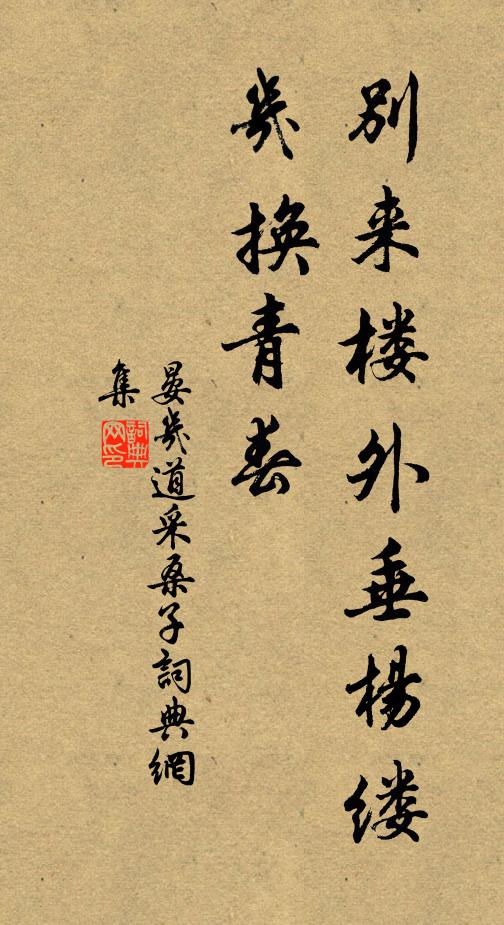 别来楼外垂杨缕
几换青春
晏几道采桑子詞典網
集
詞典
网印